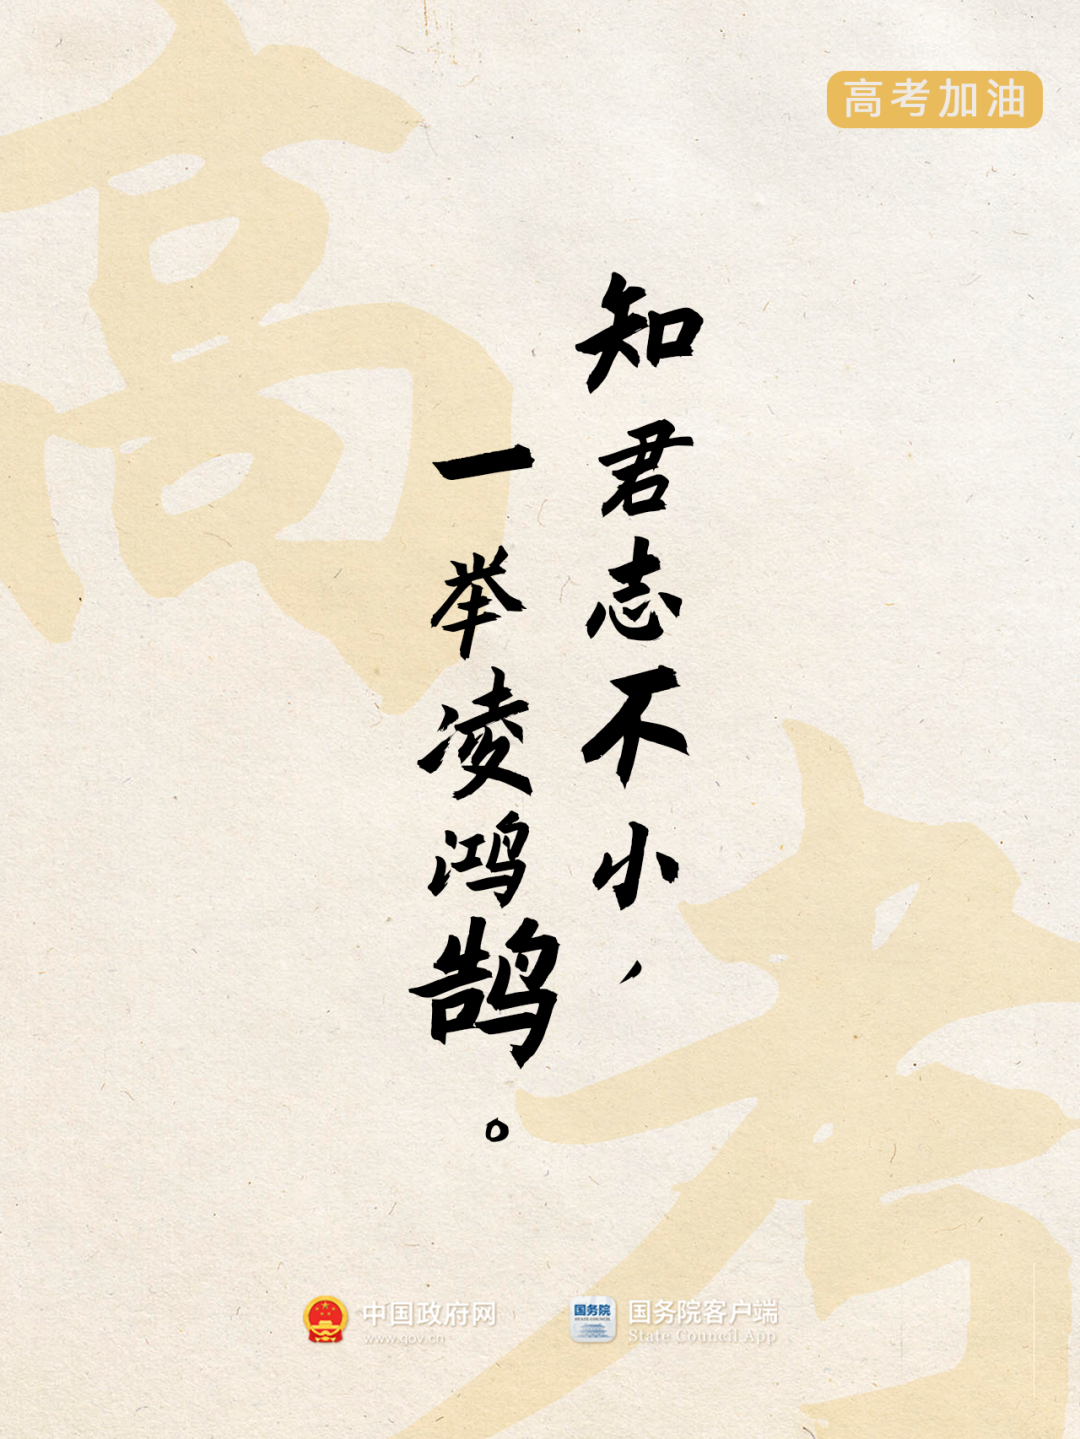 高考加油
高考
知君志不小，
一举凌鸿鹄。
中国政府网
www.gov.cn
国务院
STATE COUNCIL
国务院客户端
State Council App